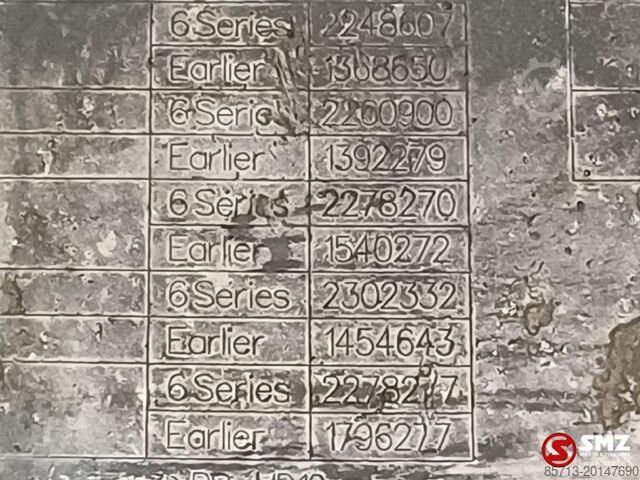 6 Series 2248607
Earlier 1368650
6 Series 2260900
Earlier 1392279
6 Series 2278270
Earlier 1540272
6 Series 2302332
Earlier 1454643
6 Series 2278277
Earlier 1796277
SMZ
85713-20147690